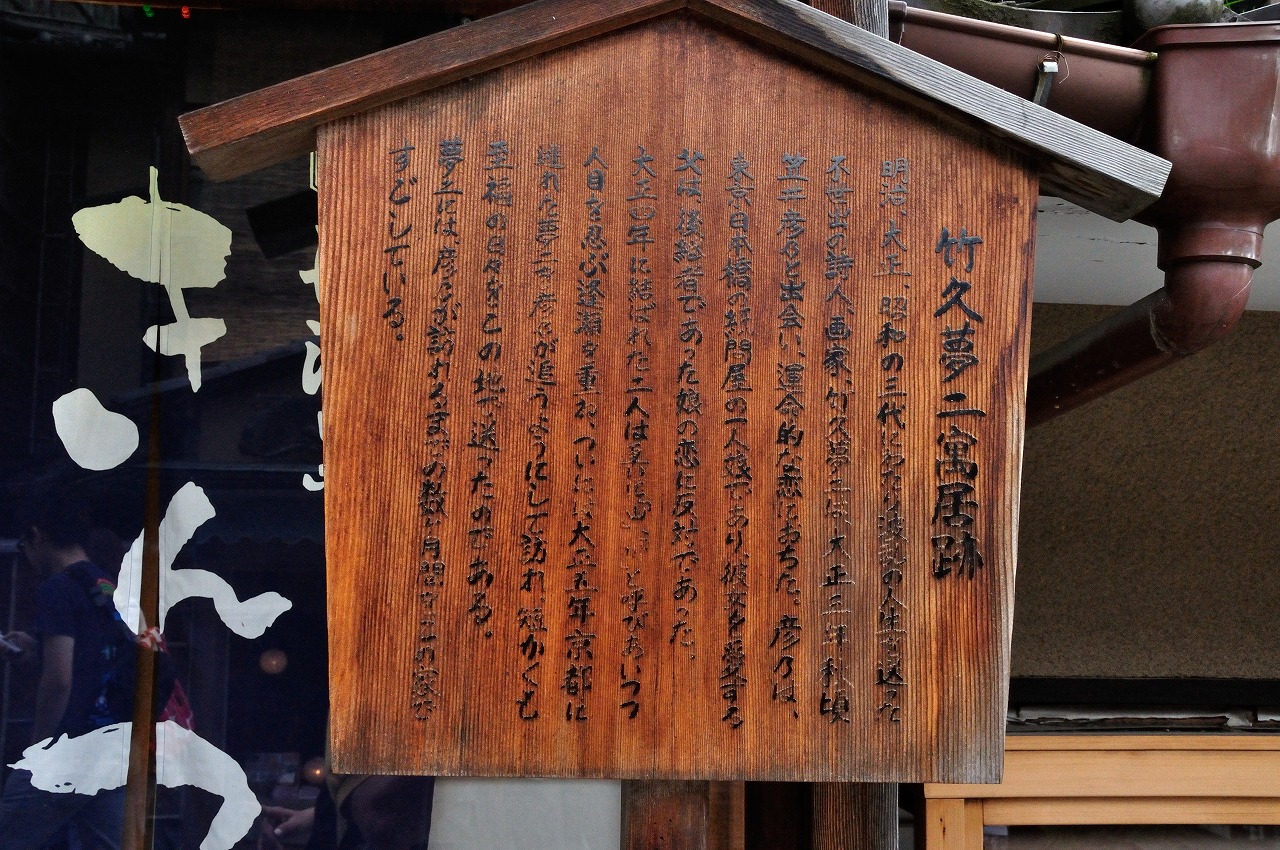 竹久夢二寓居跡
明治、大正、昭和の三代にわたり波乱の人生を送った
不世出の詩人、画家、竹久夢二は、大正三年秋頃
笠井彦乃と出会い、運命的な恋におちた。彦乃は、
東京日本橋の紙問屋の一人娘であり、彼女を愛する
父は、後総者であった娘の恋に反対であった。
大正四年に結ばれた二人は互に「山」「川」と呼びあいつつ
人目を忍ぶ逢瀬を重ね、ついには、大正五年京都に
逃れた夢二を彦乃が追うようにして訪れ、短かくも
至福の日々をこの地で送ったのである。
夢二には、彦乃が訪れるまでの数ヶ月間をこの家で
すごしている。